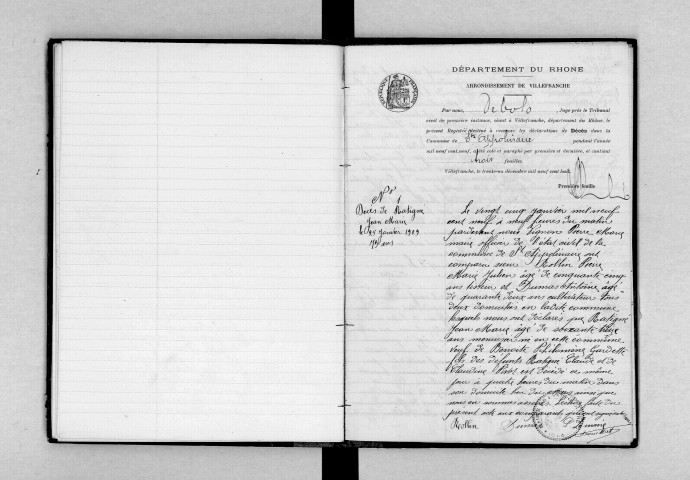 DÉPARTEMENT DU RHONE
ARRONDISSEMENT DE VILLEFRANCHE
Par nous, Juge près le Tribunal
civil de première instance, séant à Villefranche, département du Rhône, le
présent Registre destiné à recevoir les déclarations de Décès dans la
Commune de St Appolinaire pendant l'année
mil neuf cent neuf, a été coté et paraphé par première et dernière, et contient
trois feuilles.
Villefranche, le trente-un décembre mil neuf cent huit.
Première feuille
No 1
Décès de Ratigné
Jean Marie
le 25 janvier 1909
ans
Le vingt cinq janvier mil neuf
cent neuf à neuf heures du matin
pardevant nous Pierre Marie
maire officier de l'état civil de la
commune de St Appolinaire ont
comparu Rollin Pierre
Marie Julien âgé de cinquante cinq
ans et Dumas Antoine âgé
de quarante deux ans cultivateur tous
deux domiciliés en ladite commune
lesquels nous ont déclarés que Ratigné
Jean Marie âgé de soixante
ans né en cette commune
veuf de Benoite Philomène Gardette
fils des défunts Ratigné Claude et de
Claudine est décédé ce même
jour à quatre heures du matin dans
son domicile ainsi que
nous en sommes assurés. Lecture faite du
présent acte aux comparants
Rollin Dumas